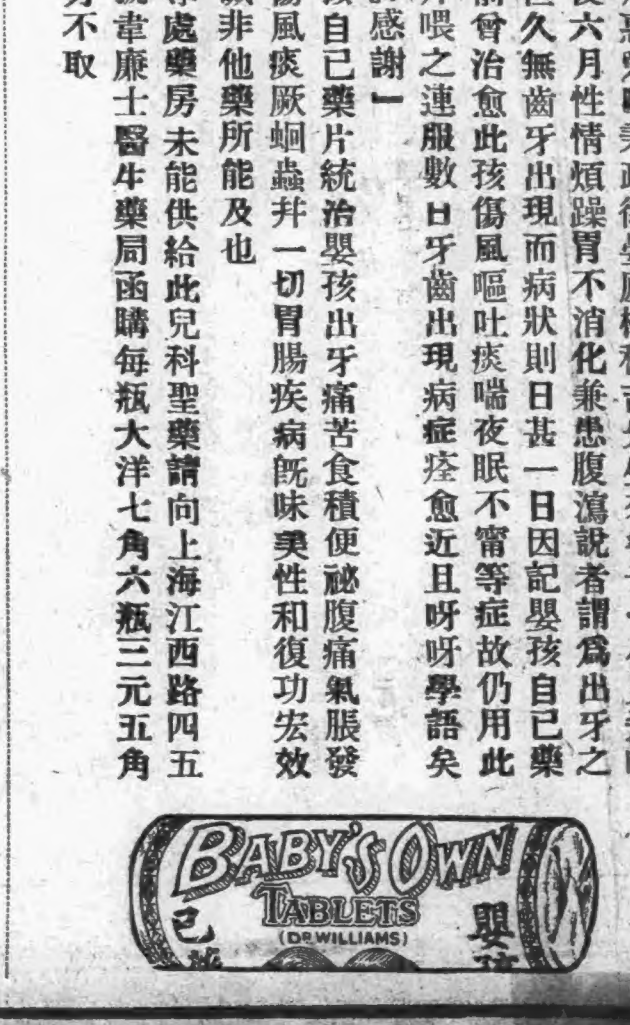 後六月性情煩躁胃不消化兼患腹瀉說者謂爲出牙之
久無齒牙出現而病狀則日甚一日因記嬰孩自己藥
曾治愈此孩傷風嘔吐痰喘夜眠不甯等症故仍用此
喂之連服數日牙齒出現病症痊愈近且呀呀學語矣
感謝」
孩自己藥片統治嬰孩出牙痛苦食積便祕腹痛氣脹發
傷風痰厥蛔蟲幷一切胃腸疾病旣味美性和復功宏效
非他藥所能及也
處藥房未能供給此兒科聖藥請向上海江西路四五
韋廉士醫生藥局函購每瓶大洋七角六瓶三元五角
不取
BABY'S OWN
TABLETS
(DR WILLIAMS)
嬰孩
自己